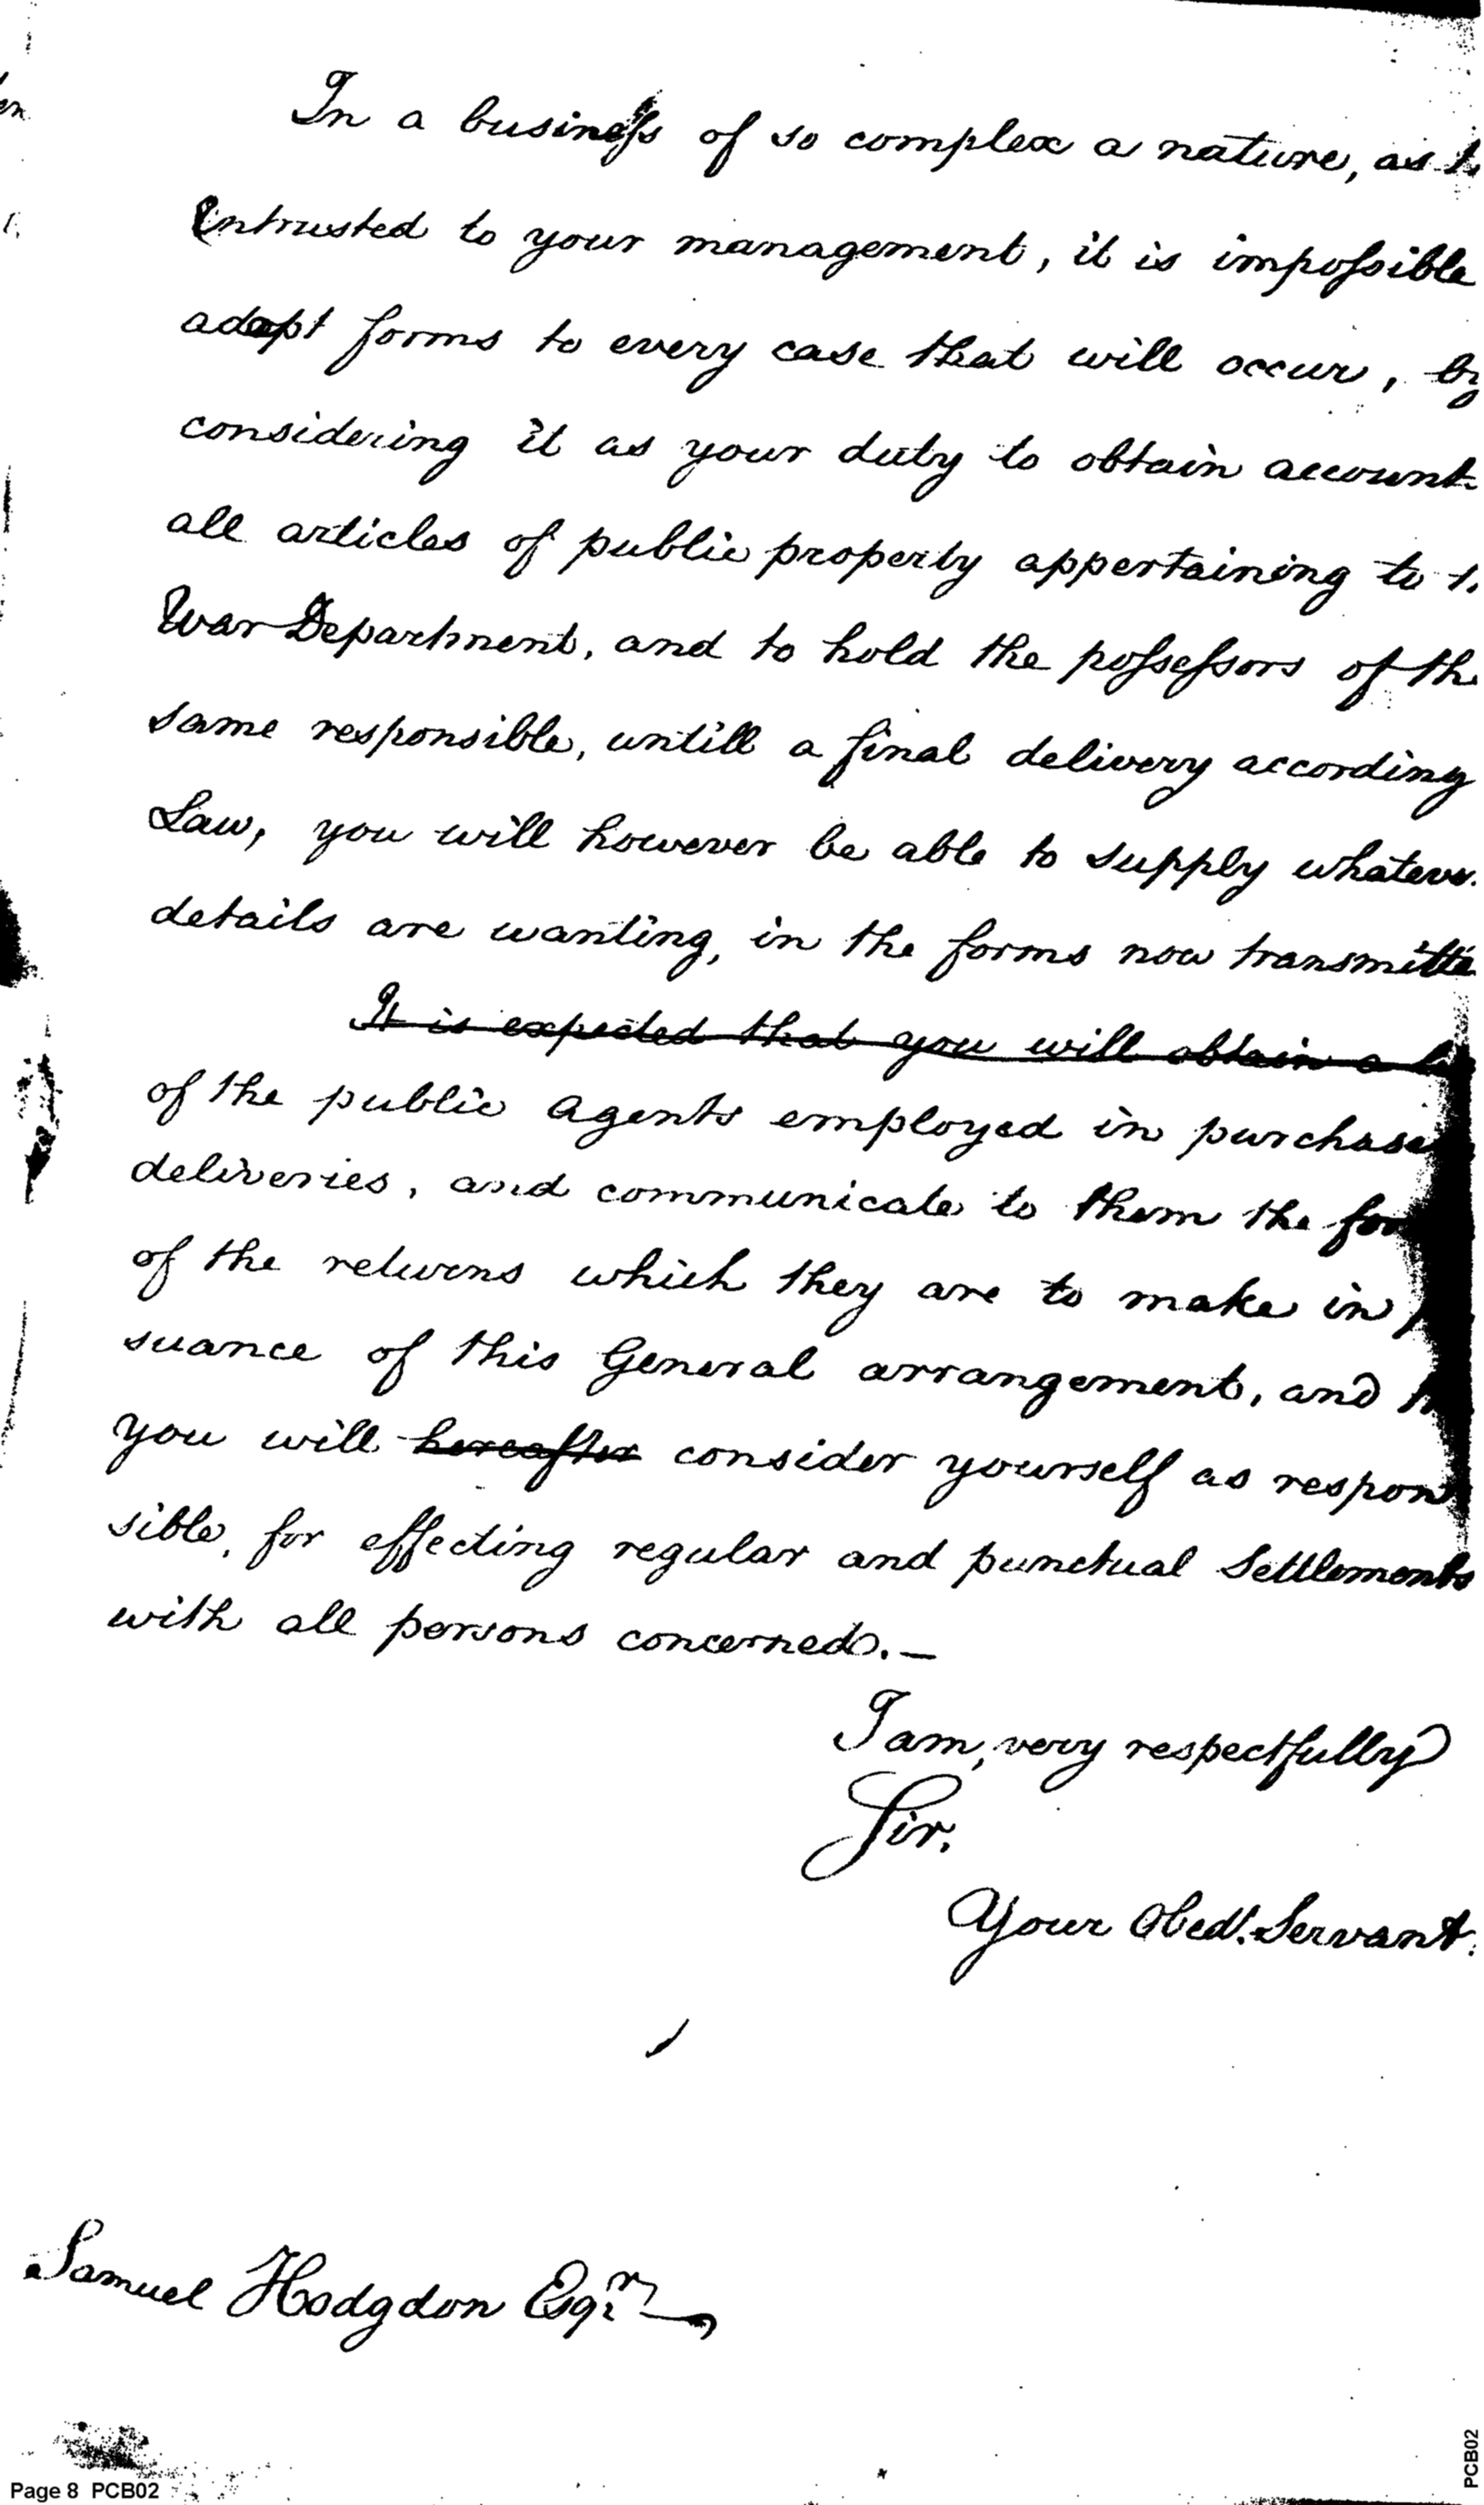 In a business of so complex a nature, as
Entrusted to your management, it is impossible
adapt forms to every case that will occur, by
considering it as your duty to obtain account
all articles of public property appertaining to
War Department, and to hold the possessors of th
same responsible, untill a final delivery according
Law, you will however be able to supply whatever
details are wanting, in the forms now transmitte
It is expected that you will obtain a
of the public agents employed in purchase
deliveries, and communicate to them the for
of the returns which they are to make in
suance of this General arrangement, and
you will hereafter consider yourself as respon
sible, for effecting regular and punctual Settlements
with all persons concerned. —
I am, very respectfully
Sir,
Your Obedt. Servant.
Samuel Hodgdon Esqr.
Page 8 PCB02
PCB02